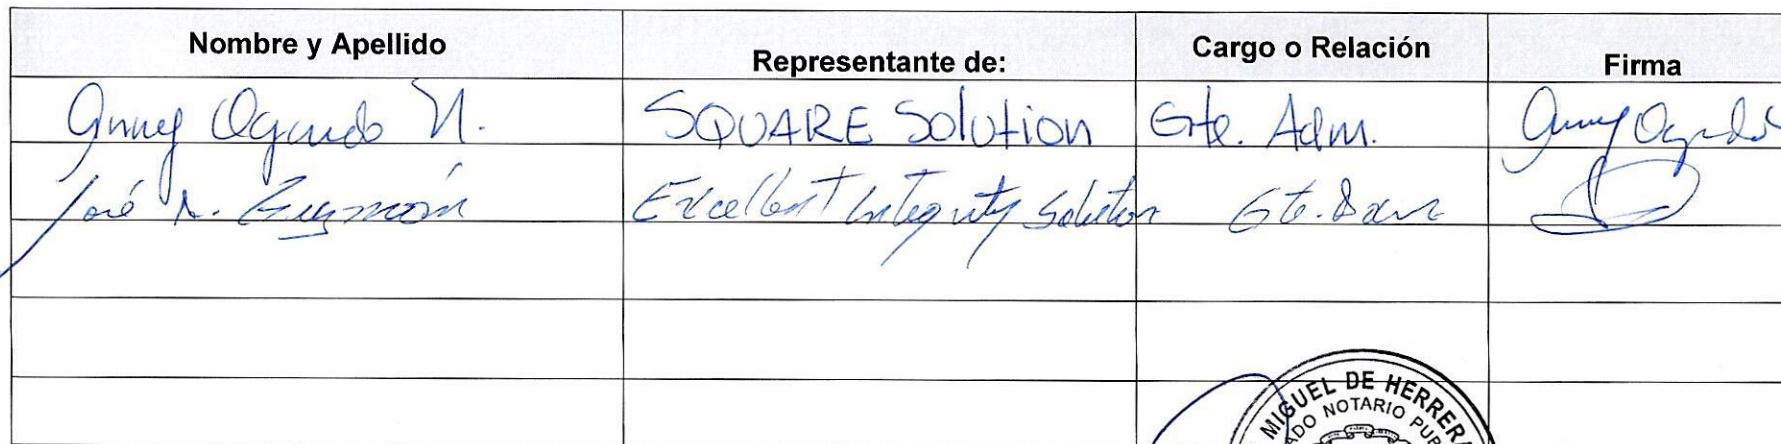 Nombre y Apellido Representante de: Cargo o Relación Firma
Ogando N. SQUARE Solution Gte. Adm.
José A. Guzmán Excellent Integrity Solution Gte.
MIGUEL DE HERRERA
NOTARIO